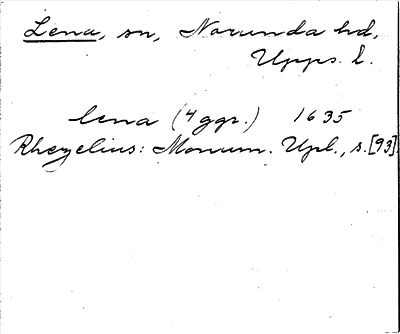 Lena, sn, Norunda hd,
Upps. l.
lena (4 ggr.) 1635
Rhezelius: Monum. Upl., s. [93].